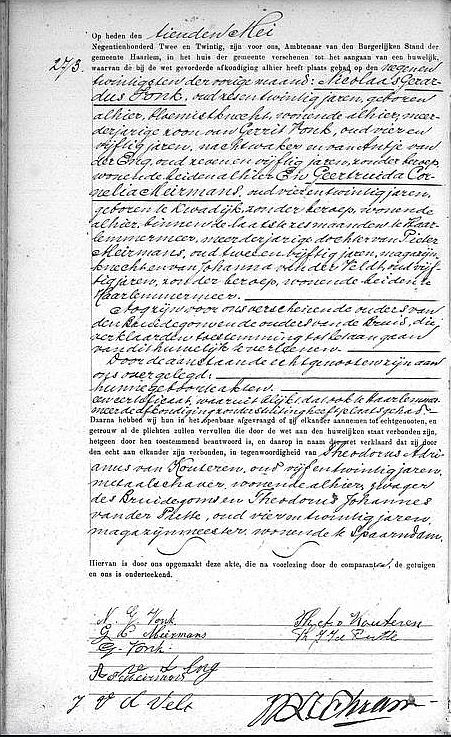 Op heden den tienden Mei
Negentienhonderd Twee en Twintig, zijn voor ons, Ambtenaar van den Burgerlijken Stand der
gemeente Haarlem, in het huis der gemeente verschenen tot het aangaan van een huwelijk,
273. waarvan de bij de wet gevorderde afkondiging alhier heeft plaats gehad op den negen en
twintigsten der vorige maand: Nicolaas Gerar-
dus Vonk, oud zes en twintig jaren, geboren
alhier, bloemistknecht, wonende alhier, meer-
derjarige zoon van Gerrit Vonk, oud vier en
vijftig jaren, nachtwaker en van Antje van
der Eng, oud zeven en vijftig jaren, zonder beroep,
wonende beiden alhier En Geertruida Cor-
nelia Meirmans, oud vier en twintig jaren,
geboren te Kwadijk, zonder beroep, wonende
alhier, binnen de laatste zes maanden te Haar-
lemmermeer, meerderjarige dochter van Pieter
Meirmans, oud twee en vijftig jaren, magazijn-
knecht en van Johanna van der Veldt, oud vijf-
tig jaren, zonder beroep, wonende beiden te
Haarlemmermeer.
Nog zijn voor ons verschenen de ouders van
den Bruidegom en de ouders van de Bruid, die
verklaarden toestemming tot het aangaan
van dit huwelijk te verleenen.
Door de aanstaande echtgenooten zijn aan
ons overgelegd:
hunne geboorteakten.
een certificaat, waaruit blijkt, dat ook te Haarlemmer-
meer de afkondiging zonder stuiting heeft plaats gehad.
Daarna hebben wij hun in het openbaar afgevraagd of zij elkander aannemen tot echtgenooten, en
getrouw al de plichten zullen vervullen die door de wet aan den huwelijken staat verbonden zijn,
hetgeen door hen toestemmend beantwoord is, en daarop in naam der wet verklaard dat zij door
den echt aan elkander zijn verbonden, in tegenwoordigheid van Theodorus Adri-
anus van Kouteren, oud vijf en twintig jaren,
metaalschaver, wonende alhier, zwager
des Bruidegoms en Theodorus Johannes
van der Plette, oud vier en twintig jaren,
magazijnmeester, wonende te Spaarndam.
Hiervan is door ons opgemaakt deze akte, die na voorlezing door de comparanten, de getuigen
en ons is onderteekend.
N. G. Vonk Th. A. v Kouteren
G C Meirmans Th J v d Plette
G. Vonk
A v d Eng
P Meirmans
J v d Velt